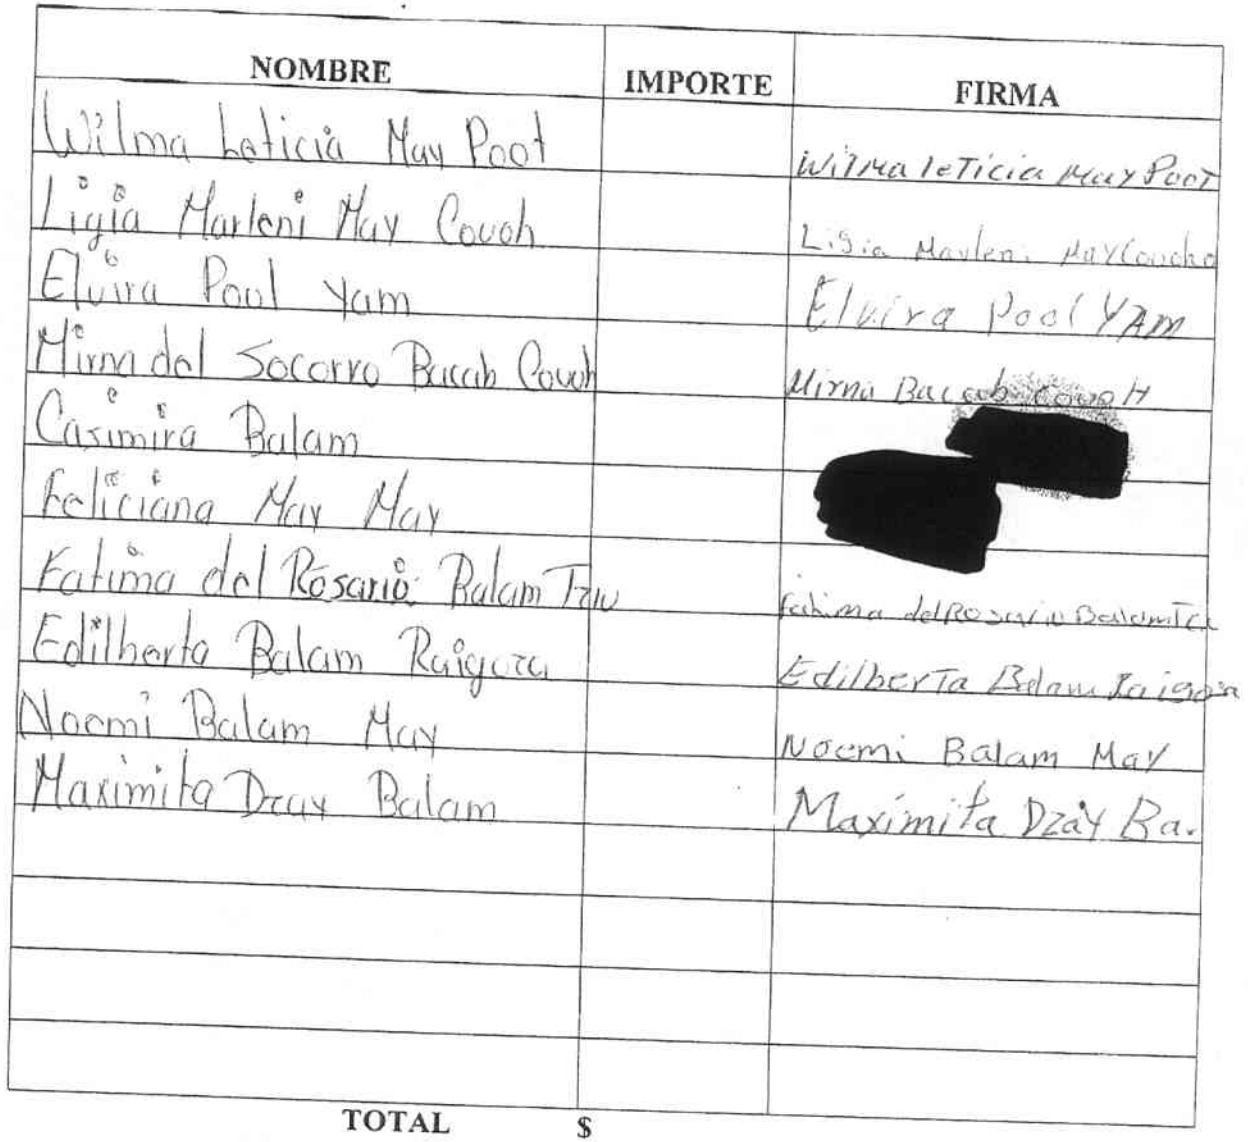 NOMBRE IMPORTE FIRMA
Wilma Leticia May Poot Wilma leTicia May PooT
Ligia Marleni May Couoh Ligia Marleni May Couoho
Elvira Pool Yam Elvira Pool YAm
Mirna del Socorro Bacab Couoh Mirna Bacab CouoH
Casimira Balam
Feliciana May May
Fatima del Rosario Balam Tziu fatima del Rosario Balam
Edilberta Balam Raigoza EdilberTa Balam Raigosa
Noemi Balam May Noemi Balam May
Maximita Dzay Balam Maximita Dzay Ba.
TOTAL $